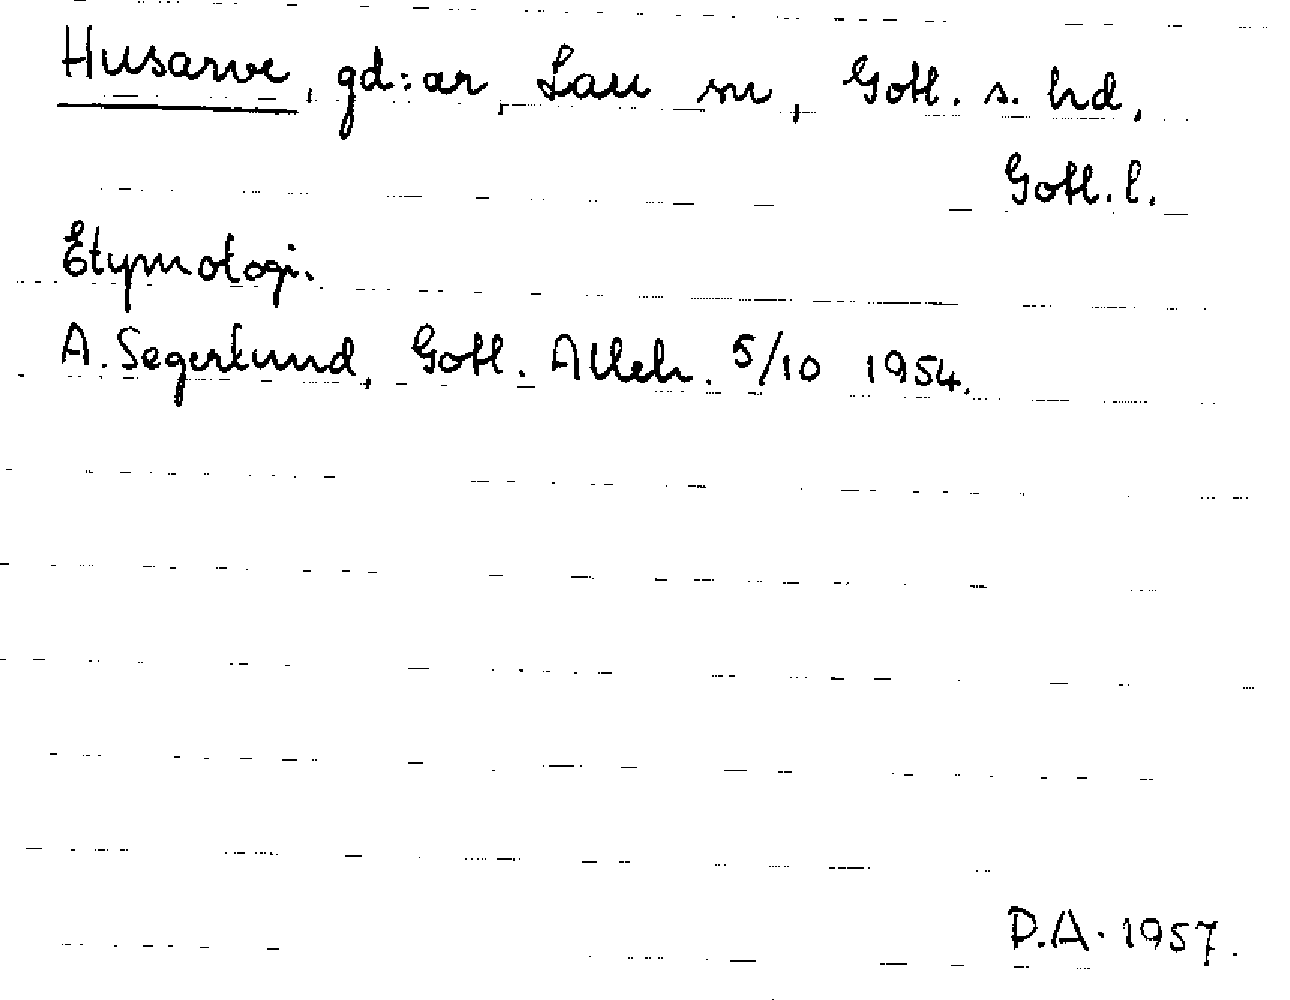 Husarve, gd:ar, Lau sn, Gotl. s. hd,
Gotl. l.
Etymologi.
A. Segerlund, Gotl. Alleh. 5/10 1954.
D.A. 1957.